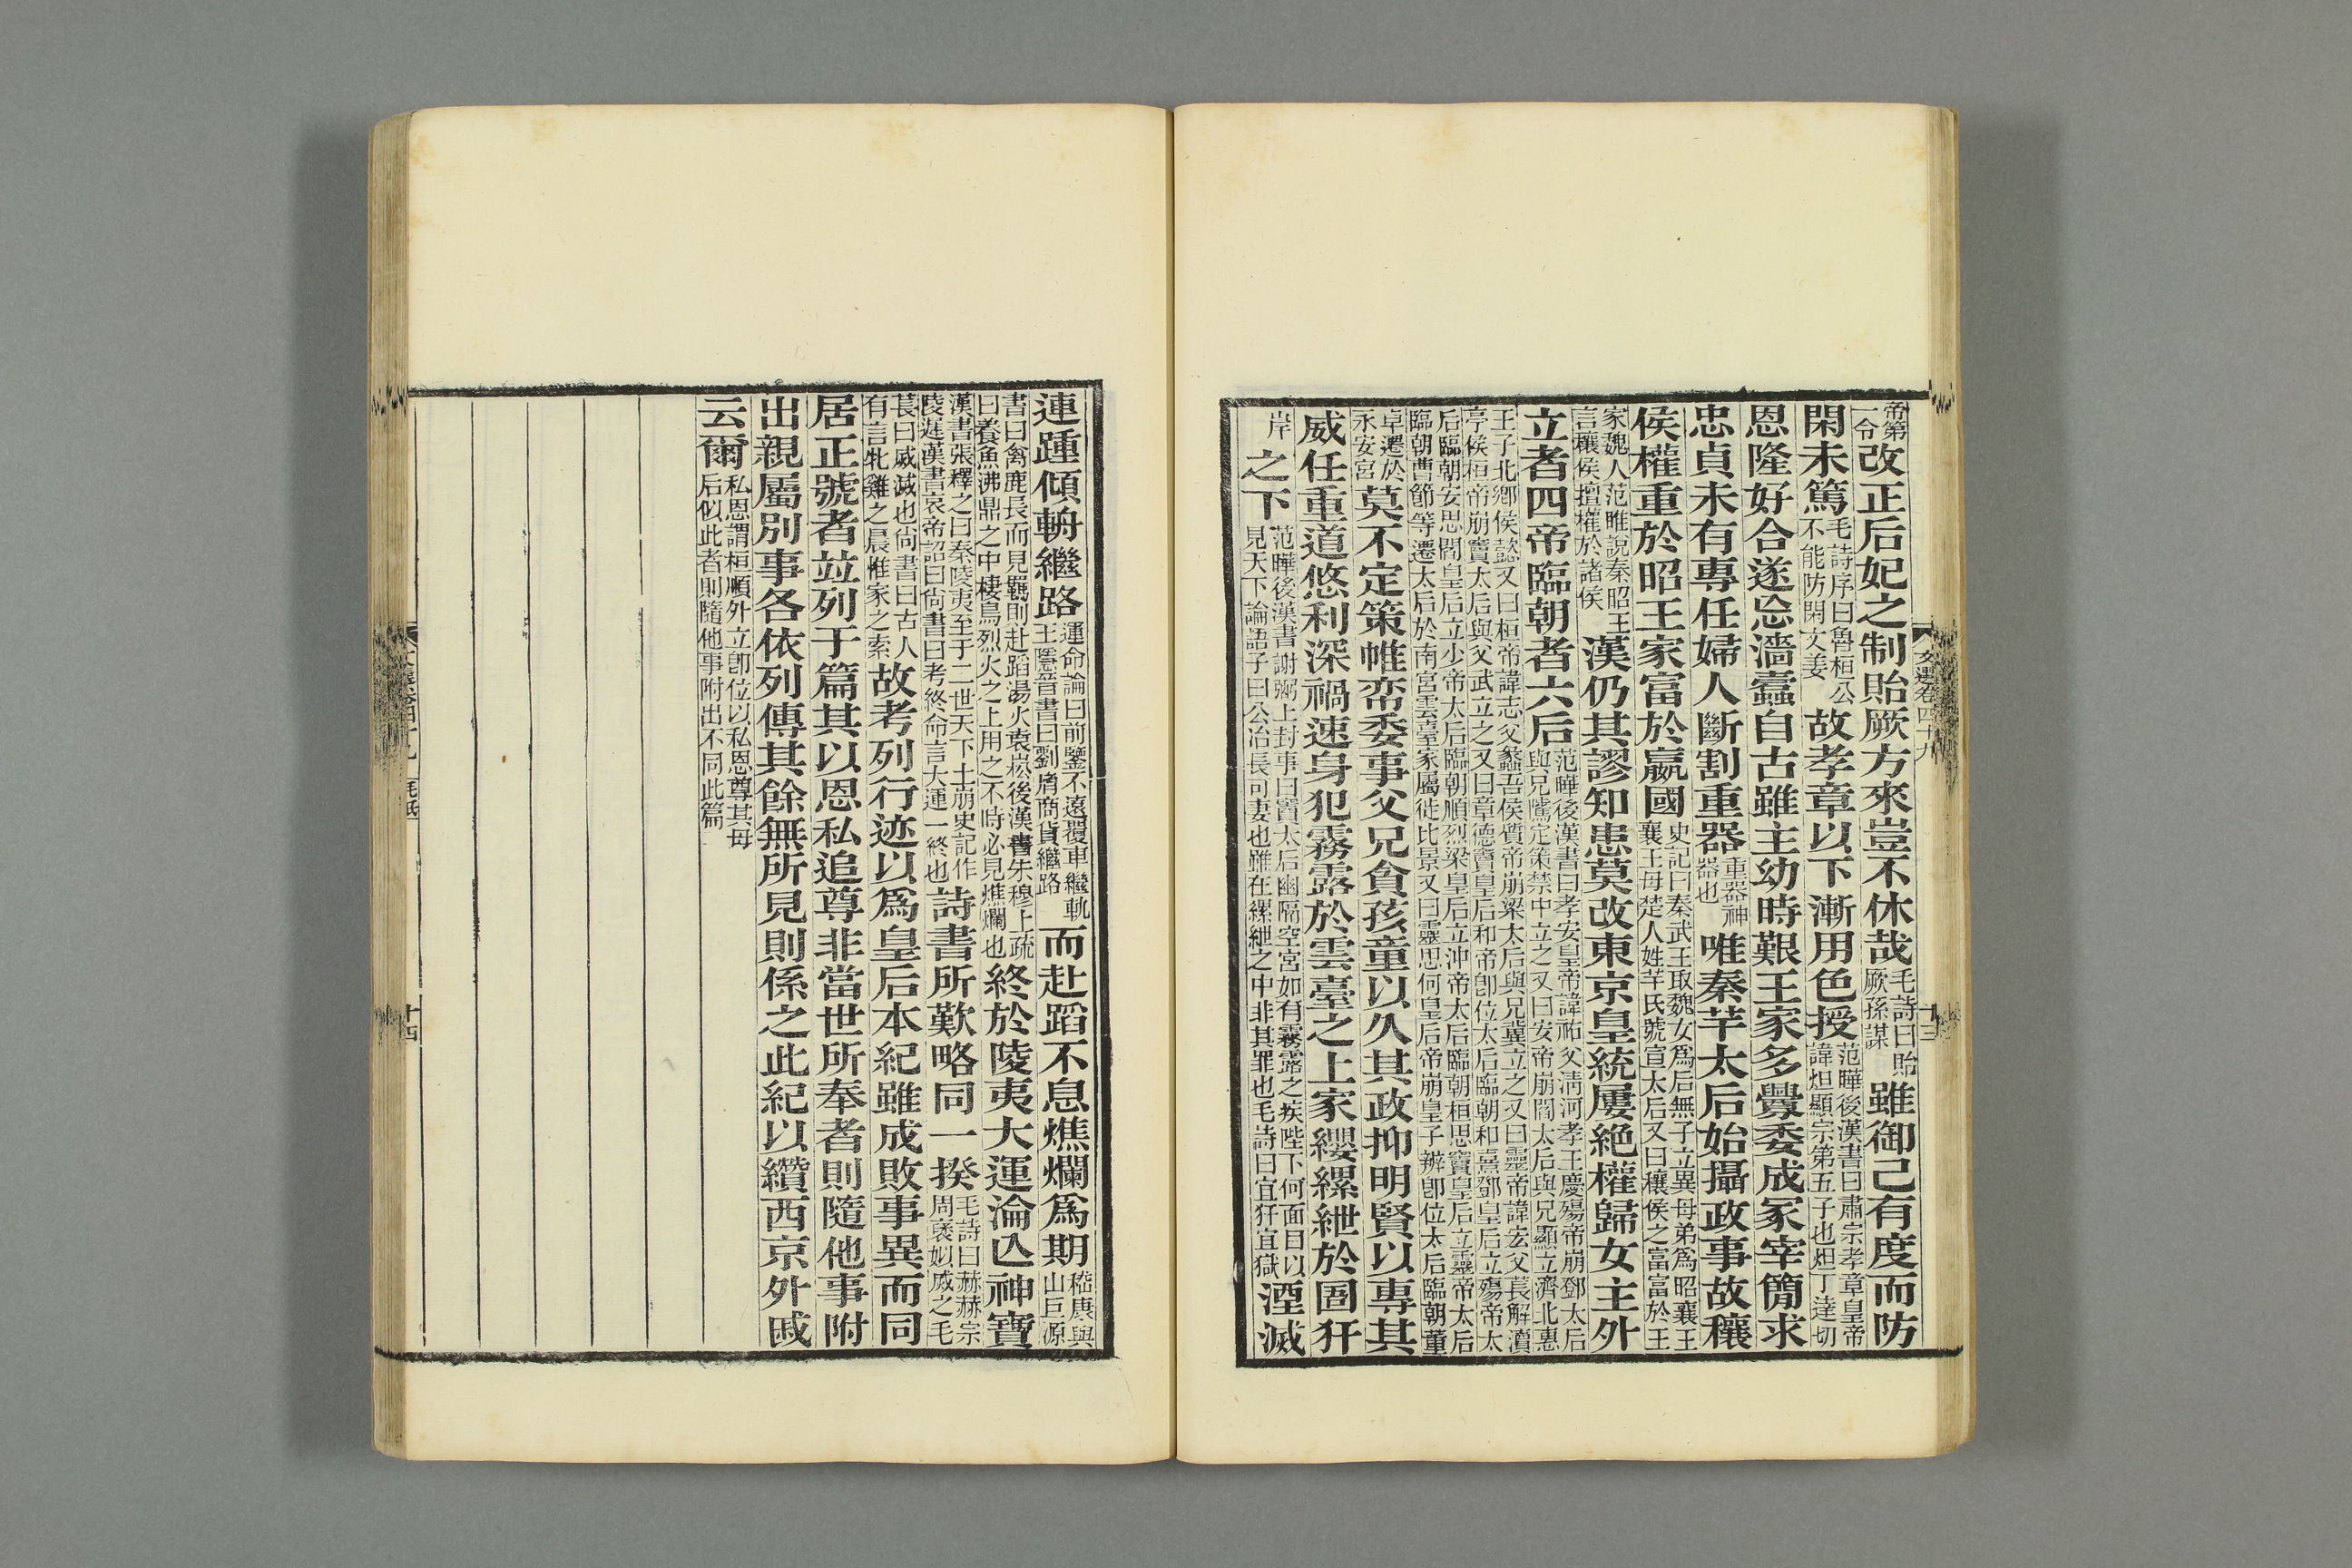 帝第一令改正后妃之制貽厥方來豈不休哉毛詩曰貽厥孫謀雖御己有度而防
閑未篤毛詩序曰魯桓公不能防閑文姜故孝章以下漸用色授范曄後漢書曰肅宗孝章皇帝諱炟顯宗第五子也炟丁達切
恩隆好合遂忘淄蠹自古雖主幼時艱王家多釁委成冢宰簡求
忠貞未有專任婦人斷割重器重器神器也唯秦芊太后始攝政事故穰
侯權重於昭王家富於嬴國史記曰秦武王取魏女爲后無子立異母弟爲昭襄王襄王母楚人姓芊氏號宣太后又曰穰侯之富富於王
家魏人范雎說秦昭王言穰侯擅權於諸侯漢仍其謬知患莫改東京皇統屢絶權歸女主外
立者四帝臨朝者六后范曄後漢書曰孝安皇帝諱祐父淸河孝王慶殤帝崩鄧太后與兄騭定策禁中立之又曰安帝崩閻太后與兄顯立濟北惠
王子北鄉侯懿又曰桓帝諱志父蠡吾侯質帝崩梁太后與兄冀立之又曰靈帝諱宏父萇解瀆亭侯桓帝崩竇太后與父武立之又曰章德竇皇后和帝卽位太后臨朝和熹鄧皇后立殤帝太
后臨朝安思閻皇后立少帝太后臨朝順烈梁皇后立沖帝太后臨朝桓思竇皇后立靈帝太后臨朝曹節等遷太后於南宮雲臺家屬徙比景又曰靈思何皇后帝崩皇子辨卽位太后臨朝董
卓遷於永安宮莫不定策帷帟委事父兄貪孩童以久其政抑明賢以專其
威任重道悠利深禍速身犯霧露於雲臺之上家纓縲紲於圄犴
岸之下范曄後漢書謝弼上封事曰竇太后幽隔空宮如有霧露之疾陛下何面目以見天下論語子曰公冶長可妻也雖在縲紲之中非其罪也毛詩曰宜犴宜獄湮滅
文選卷四十九
十三
連踵傾輈繼路運命論曰前鑒不遠覆車繼軌王隱晉書曰劉隋商貨繼路而赴蹈不息燋爛爲期嵇康與山巨源
書曰禽鹿長而見羈則赴蹈湯火袁崧後漢書朱穆上疏曰養魚沸鼎之中棲鳥烈火之上用之不時必見燋爛也終於陵夷大運淪亾神寶
漢書張釋之曰秦陵夷至于二世天下土崩史記作陵遲漢書哀帝詔曰尙書曰考終命言大運一終也詩書所歎略同一揆毛詩曰赫赫宗周褒姒烕之毛
萇曰烕滅也尙書曰古人有言牝雞之晨惟家之索故考列行迹以爲皇后本紀雖成敗事異而同
居正號者並列于篇其以恩私追尊非當世所奉者則隨他事附
出親屬別事各依列傳其餘無所見則係之此紀以纘西京外戚
云爾私恩謂桓順外立卽位以私恩尊其母后似此者則隨他事附出不同此篇
十四